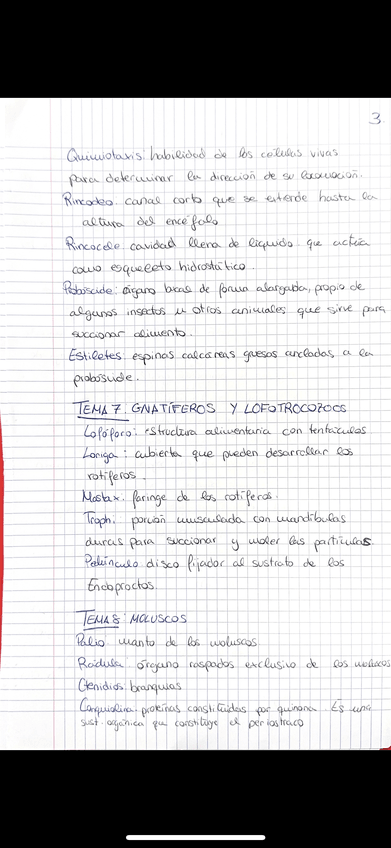 3
Quimiotaxis: habilidad de las células vivas
para determinar la dirección de su locomoción.
Rincodeo: canal corto que se extiende hasta la
altura del encéfalo
Rincocele: cavidad llena de liquido que actúa
como esqueleto hidrostático.
Probóscide: órgano bucal de forma alargada, propio de
algunos insectos u otros animales que sirve para
succionar alimento.
Estiletes: espinas calcáreas gruesas ancladas a la
probóscide.
TEMA 7: GNATÍFEROS Y LOFOTROCOZOOS
Lofóforo: structura alimentaria con tentáculos
Loriga: cubierta que pueden desarrollar los
rotíferos.
Mastax: faringe de los rotíferos.
Troph: porción musculada con mandíbulas
duras para succionar y moler las partículas.
Pedúnculo: disco fijador al sustrato de los
Endoproctos.
TEMA 8: MOLUSCOS
Palio: manto de los moluscos
Rádula: órgano raspador exclusivo de los moluscos
Ctenidios: branquias
Conquiolina: proteínas constituidas por quinona. Es una
sust. orgánica que constituye el periostraco